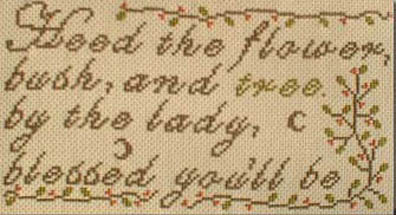 Heed the flower,
bush, and tree.
by the lady,
blessed you'll be